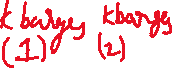 k barges kbarges
(1) (2)